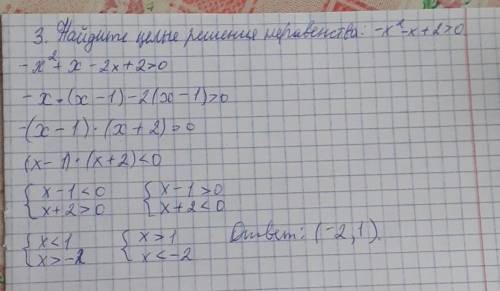 3. Найдите целые решения неравенства: -x²-x+2>0
-x²+x-2x+2>0
-x·(x-1)-2(x-1)>0
-(x-1)·(x+2)>0
(x-1)·(x+2)<0
{x-1<0 {x-1>0
{x+2>0 {x+2<0
{x<1 {x>1 Ответ: (-2,1).
{x>-2 {x<-2